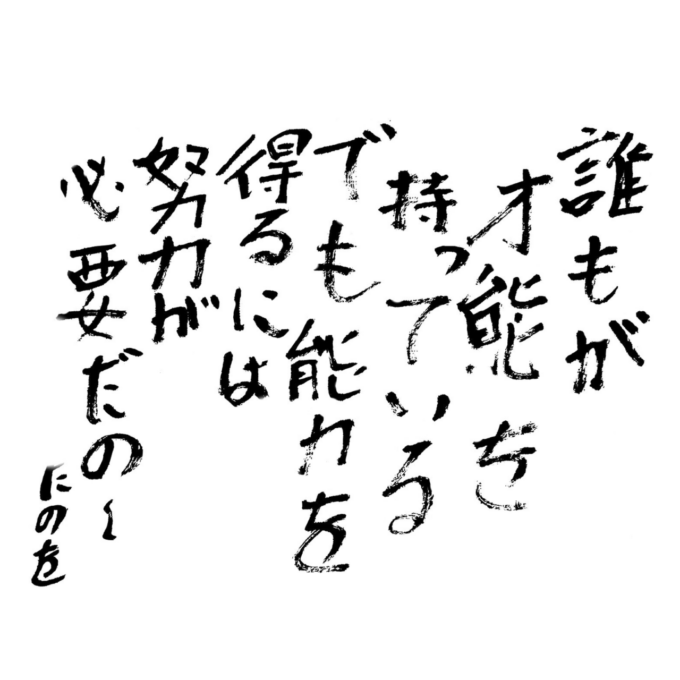 誰もが
才能を
持っている
でも能力を
得るには
努力が
必要だの〜
にのを